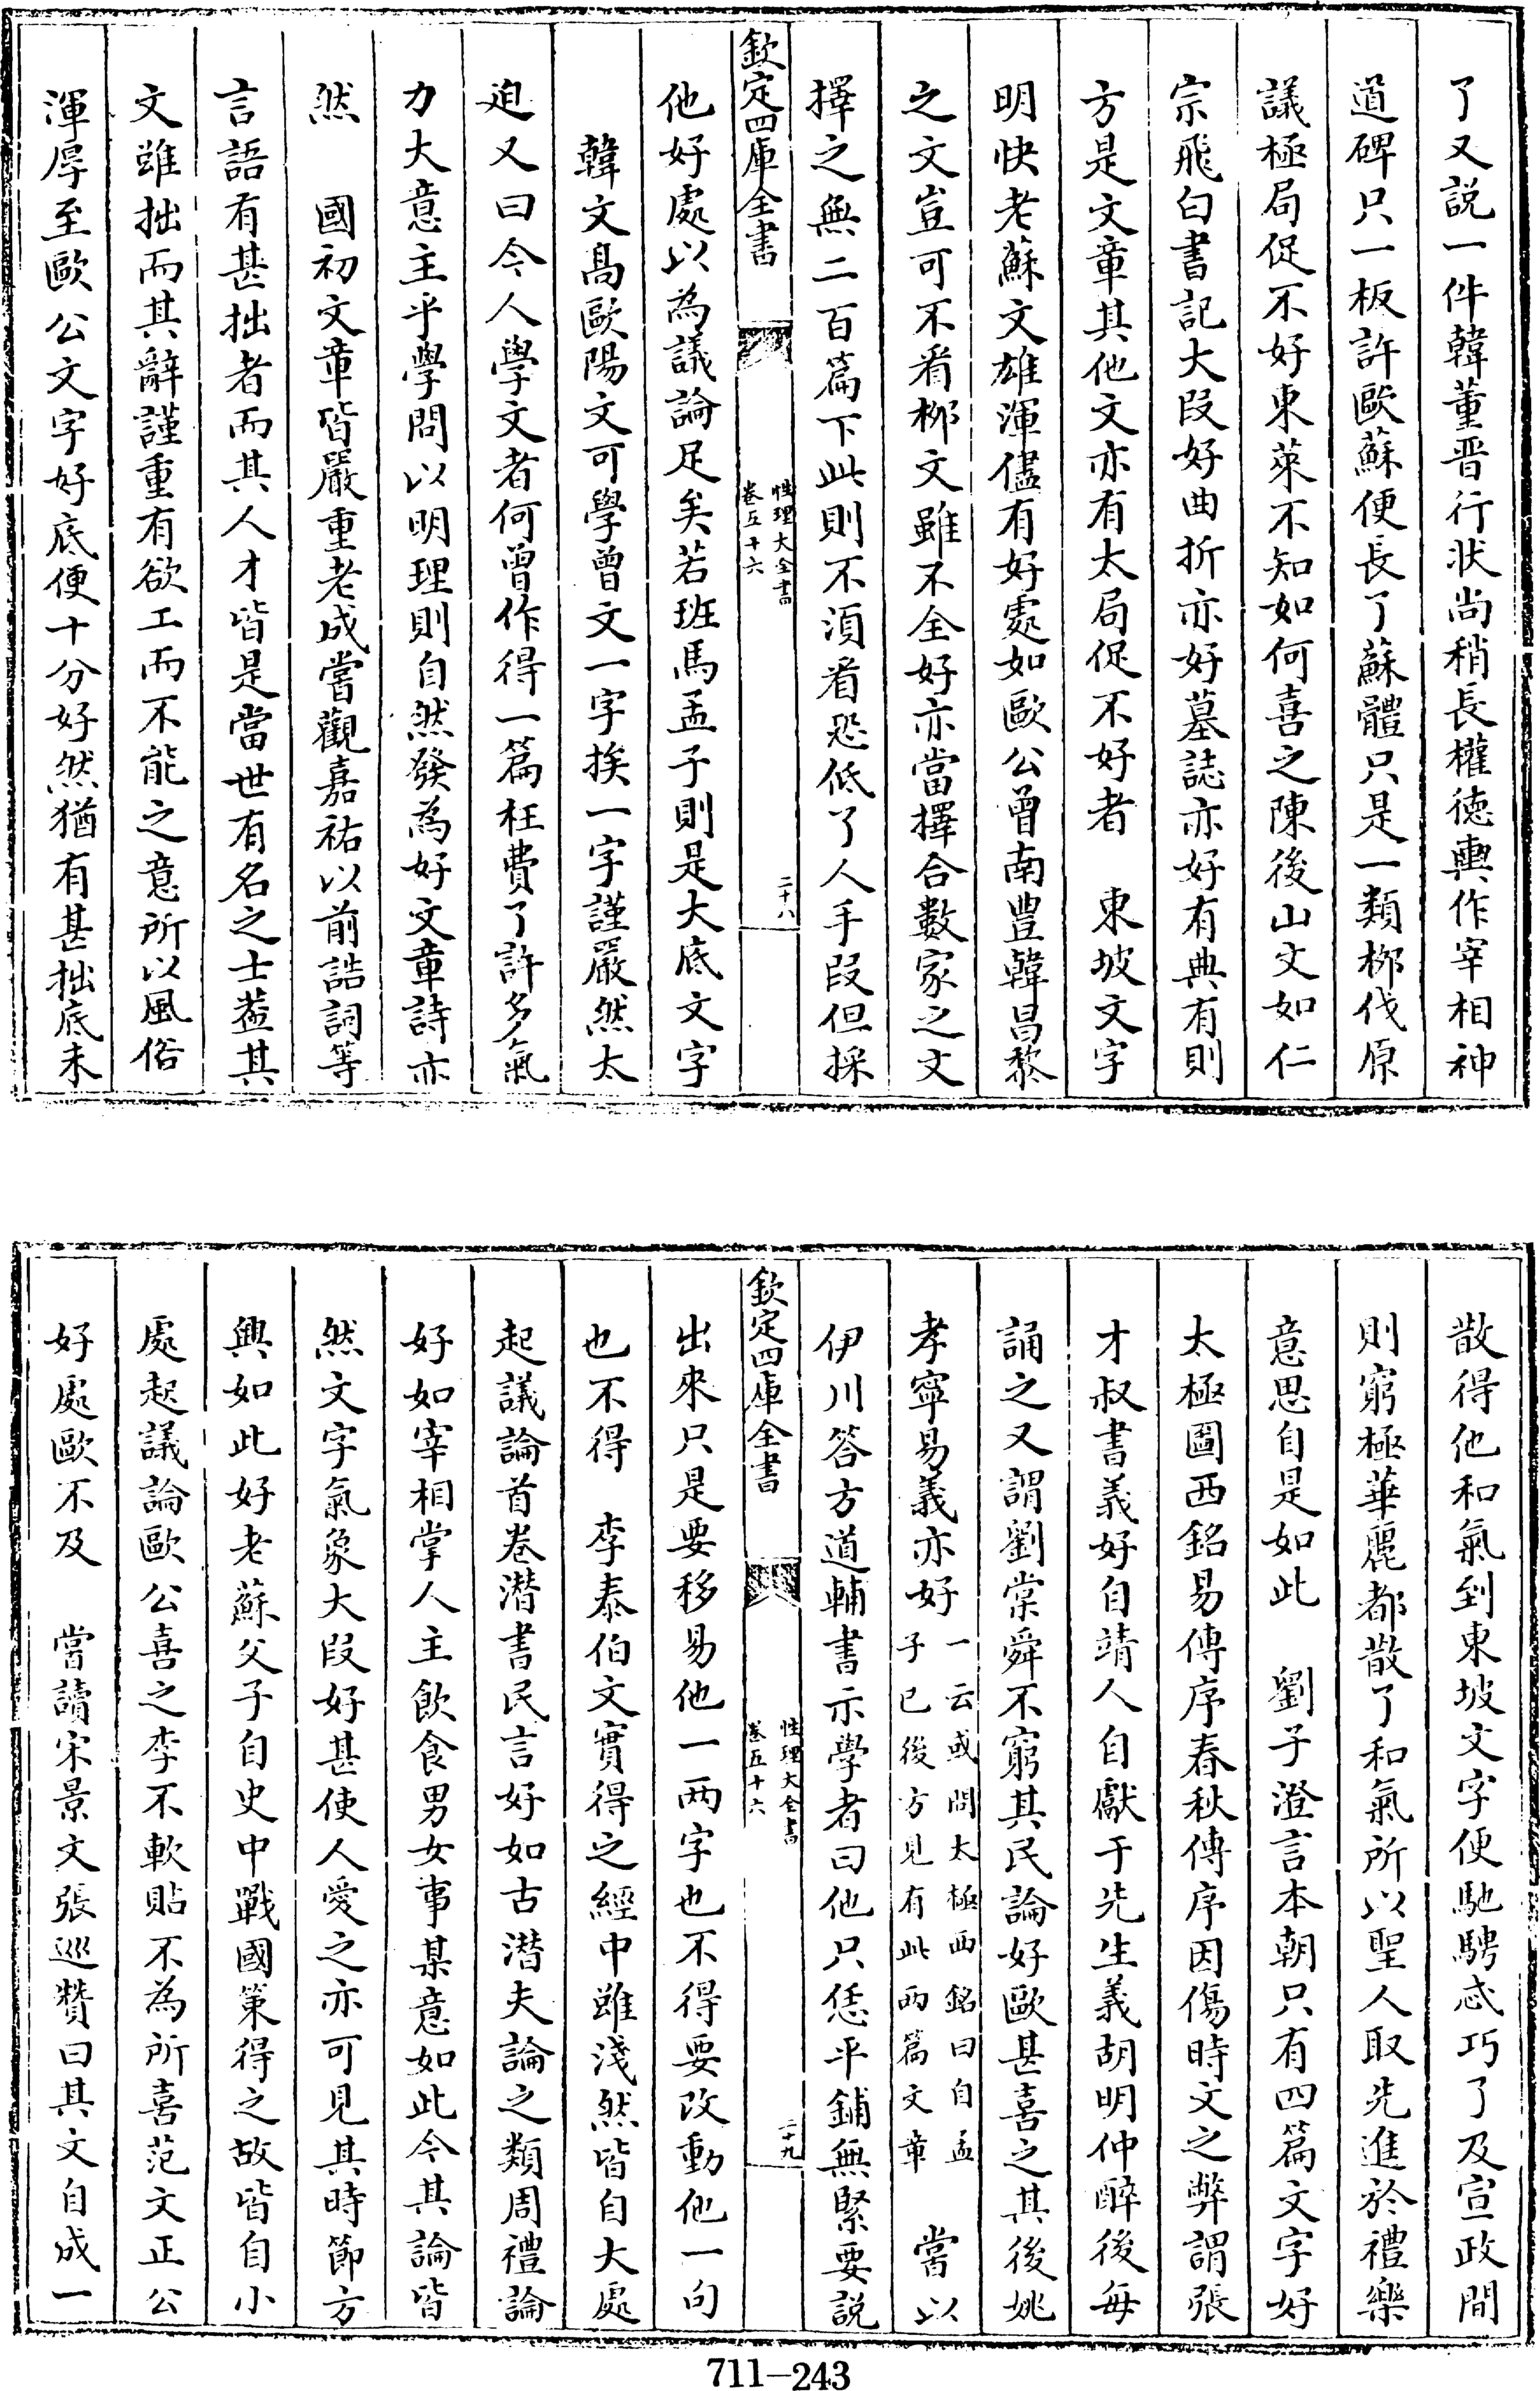 了又説一件韓董晋行状尚稍長權徳輿作宰相神
道碑只一板許歐蘇便長了蘇體只是一類栁伐原
議極局促不好東萊不知如何喜之陳後山文如仁
宗飛白書記大叚好曲折亦好墓誌亦好有典有則
方是文章其他文亦有太局促不好者　東坡文字
明快老蘇文雄渾儘有好處如歐公曾南豊韓昌黎
之文豈可不看栁文雖不全好亦當擇合數家之文
擇之無二百篇下此則不湏看恐低了人手叚但採
欽定四庫全書
性理大全書
卷五十六
二十八
他好處以為議論足矣若班馬孟子則是大底文字
韓文髙歐陽文可學曾文一字挨一字謹嚴然太
迫又曰今人學文者何曾作得一篇枉費了許多氣
力大意主乎學問以明理則自然發為好文章詩亦
然　國初文章皆嚴重老成嘗觀嘉祐以前誥詞等
言語有甚拙者而其人才皆是當世有名之士葢其
文雖拙而其辭謹重有欲工而不能之意所以風俗
渾厚至歐公文字好底便十分好然猶有甚拙底未
散得他和氣到東坡文字便馳騁忒巧了及宣政間
則窮極華麗都散了和氣所以聖人取先進於禮樂
意思自是如此　劉子澄言本朝只有四篇文字好
太極圖西銘易傳序春秋傳序因傷時文之弊謂張
才叔書義好自靖人自獻于先生義胡明仲醉後每
誦之又謂劉棠舜不窮其民論好歐甚喜之其後姚
孝寧易義亦好
一云或問太極西銘曰自孟
子已後方見有此两篇文章
嘗以
伊川答方道輔書示學者曰他只恁平鋪無緊要説
欽定四庫全書
性理大全書
卷五十六
二十九
出來只是要移易他一两字也不得要改動他一句
也不得　李泰伯文實得之經中雖淺然皆自大處
起議論首卷潜書民言好如古潜夫論之類周禮論
好如宰相掌人主飲食男女事某意如此今其論皆
然文字氣象大叚好甚使人愛之亦可見其時節方
興如此好老蘇父子自史中戰國策得之故皆自小
處起議論歐公喜之李不軟貼不為所喜范文正公
好處歐不及　嘗讀宋景文張巡贊曰其文自成一
711—243